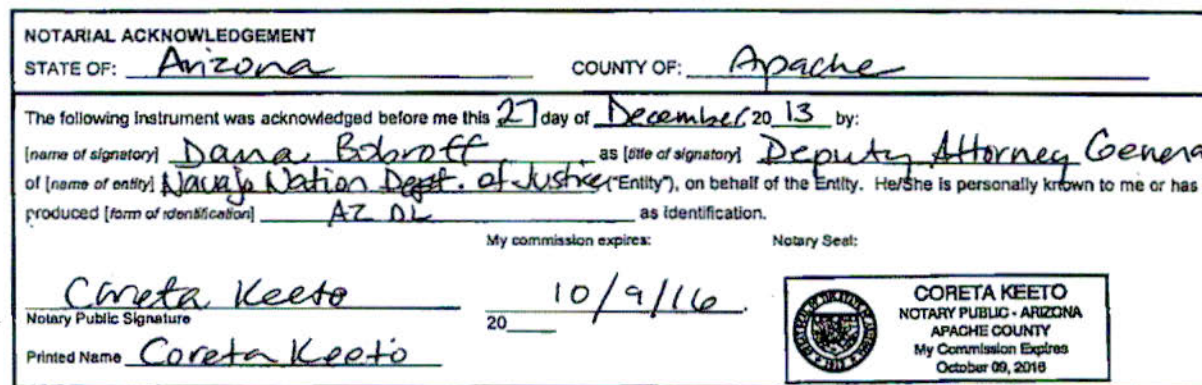 NOTARIAL ACKNOWLEDGEMENT
STATE OF: Arizona COUNTY OF: Apache
The following instrument was acknowledged before me this 27 day of December, 20 13 by:
[name of signatory] Dana Bobroff as [title of signatory] Deputy Attorney Genera
of [name of entity] Navajo Nation Dept. of Justice ("Entity"), on behalf of the Entity. He/She is personally known to me or has
produced [form of identification] AZ DL as identification.
My commission expires: Notary Seal:
Coreta Keeto 10/9/16
Notary Public Signature 20
Printed Name Coreta Keeto
CORETA KEETO
NOTARY PUBLIC - ARIZONA
APACHE COUNTY
My Commission Expires
October 09, 2016